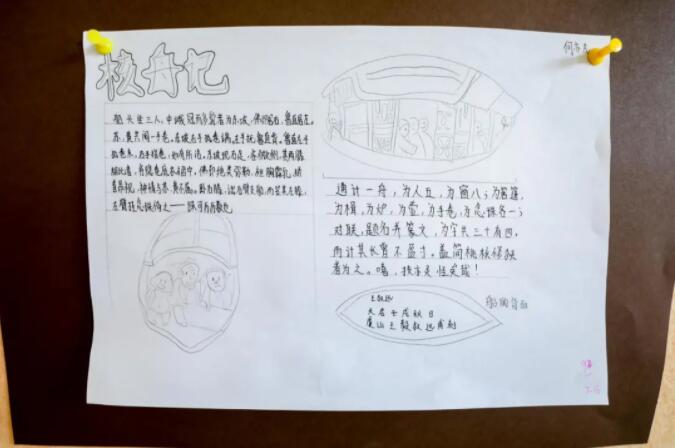 核舟记
船头坐三人，中峨冠而多髯者为东坡，佛印居右，鲁直居左。
苏、黄共阅一手卷。东坡右手执卷端，左手抚鲁直背。鲁直左手
执卷末，右手指卷，如有所语。东坡现右足，
各隐卷底衣褶中。佛印绝类弥勒，袒胸露乳，矫
首昂视，神情与苏、黄不属。卧右膝，诎右臂支船，而竖其左膝，
左臂挂念珠倚之——珠可历历数也
通计一舟，为人五；为窗八；为箬篷，
为楫，为炉，为壶，为手卷，为念珠各一；
对联、题名并篆文，为字共三十有四。
而计其长曾不盈寸。盖简桃核修狭
者为之。嘻，技亦灵怪矣哉！
王叔远
天启壬戌秋日
虞山王毅叔远甫刻
船的背面